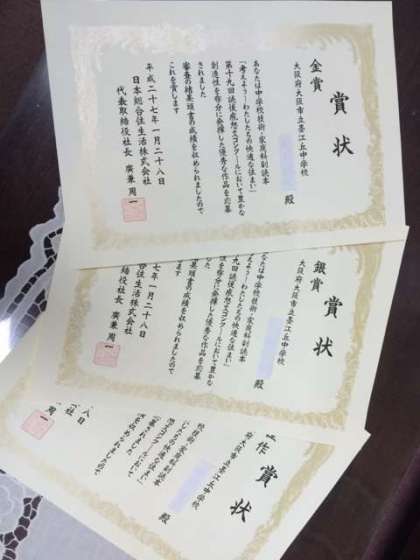 金賞 賞状
大阪府大阪市立墨江丘中学校
殿
あなたは中学校技術・家庭科副読本
「考えよう!わたしたちの快適な住まい」
第十九回読後感想文コンクールにおいて豊かな
創造性を存分に発揮した優秀な作品を応募
されました
審査の結果頭書の成績を収められましたので
これを賞します
平成二十七年一月二十八日
日本総合住生活株式会社
代表取締役社長 廣兼周一
銀賞 賞状
大阪府大阪市立墨江丘中学校
殿
あなたは中学校技術・家庭科副読本
「考えよう!わたしたちの快適な住まい」
第十九回読後感想文コンクールにおいて豊かな
創造性を存分に発揮した優秀な作品を応募
されました
審査の結果頭書の成績を収められましたので
七年一月二十八日
合住生活株式会社
締役社長 廣兼周一
作 賞状
府大阪市立墨江丘中学校
殿
校技術・家庭科副読本
したちの快適な住まい」
想文コンクールにおいて
を収められましたので
八日
会社
周一